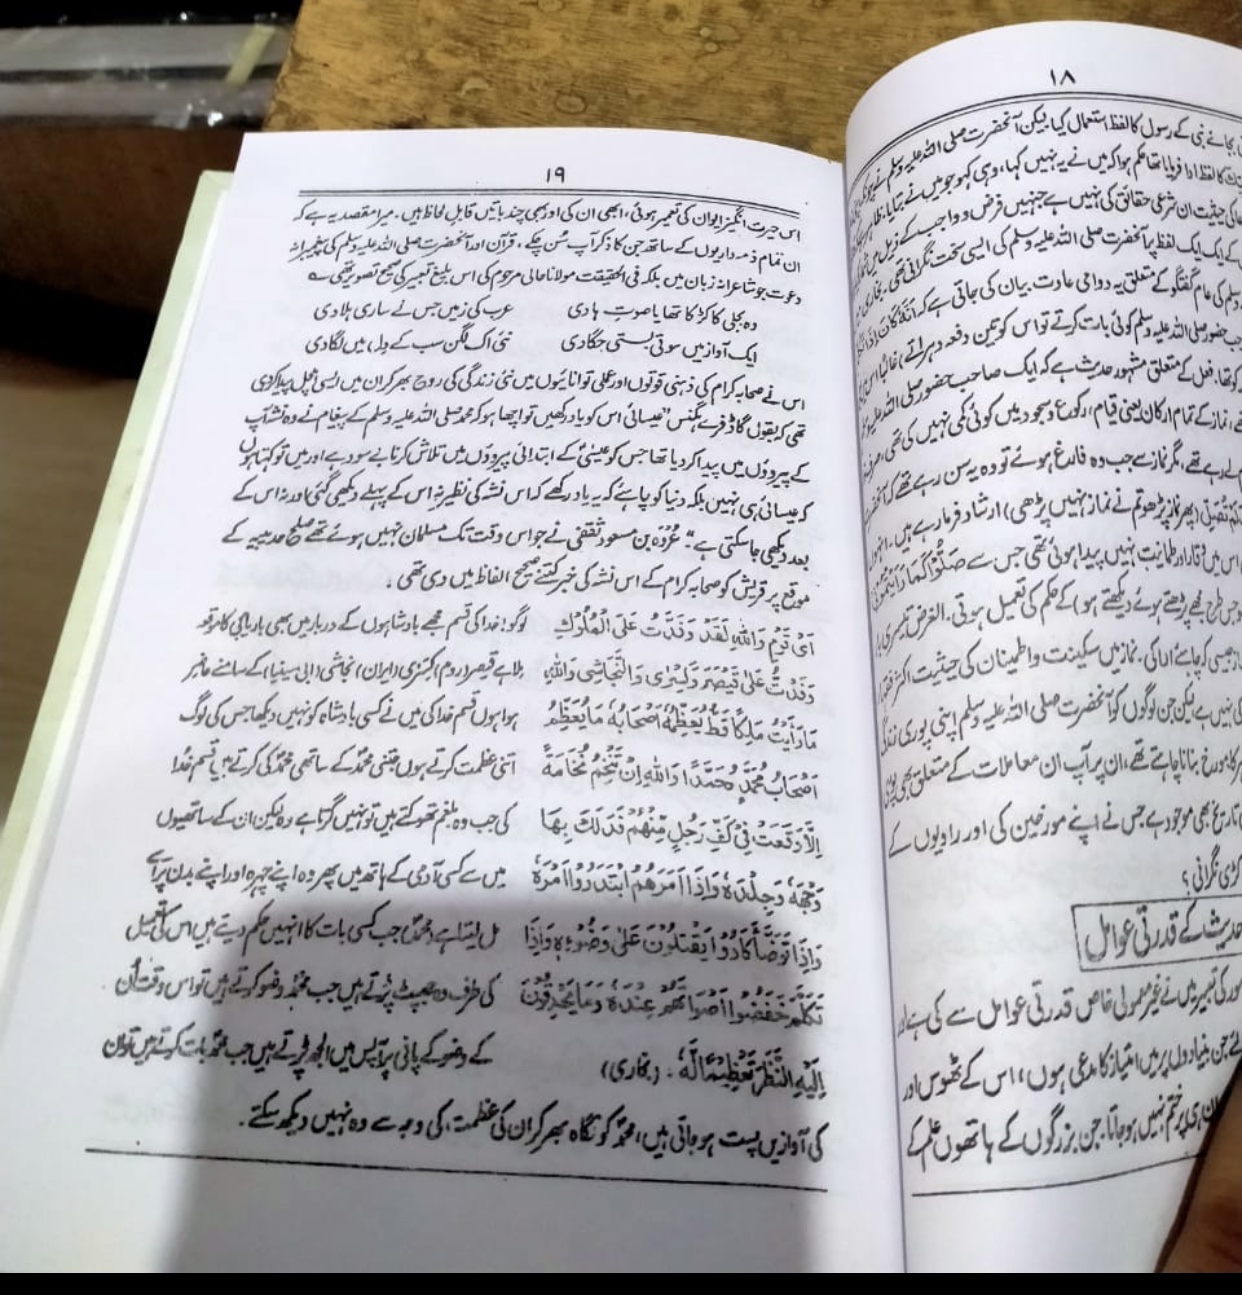 ١٨
بجائے نبی کے رسول کا لفظ استعمال کیا لیکن آنحضرت صلی اللہ علیہ وسلم نے
کا لفظ ادا فرمایا تھا حکم ہوا کہ میں نے یہ نہیں کہا، وہی کہو جو میں نے بتایا۔
کی حیثیت ان شرعی حقائق کی نہیں ہے جنہیں فرض و واجب کے ذیل میں
کے ایک ایک لفظ پر آنحضرت صلی اللہ علیہ وسلم کی ایسی سخت نگرانی تھی۔ بخاری
وسلم کی عام گفتگو کے متعلق یہ دوامی عادت بیان کی جاتی ہے کہ اَنَّهٗ كَانَ اِذَا
جب حضور صلی اللہ علیہ وسلم کوئی بات کرتے تو اس کو تین دفعہ دہراتے) غالباً
تھا۔ فعل کے متعلق مشہور حدیث ہے کہ ایک صاحب حضور صلی اللہ علیہ
تھے، نماز کے تمام ارکان یعنی قیام، رکوع، سجود میں کوئی کمی نہیں کی تھی،
رہے تھے، مگر نماز سے جب وہ فارغ ہوئے تو وہ یہ سن رہے تھے کہ
تُصَلِّ (پھر نماز پڑھو تم نے نماز نہیں پڑھی) ارشاد فرما رہے ہیں۔ انہوں
اس میں وقار اور طمانیت نہیں پیدا ہوئی تھی جس سے صَلُّوْا كَمَا رَأَيْتُمُوْنِيْ
جس طرح مجھے پڑھتے ہوئے دیکھتے ہو) کے حکم کی تعمیل ہوتی۔ الغرض تیسری
جیسی کہ چاہئے ادا کی۔ نماز میں سکینت و اطمینان کی حیثیت اکثر فقہا
کی نہیں ہے لیکن جن لوگوں کو آنحضرت صلی اللہ علیہ وسلم اپنی پوری زندگی
کا مورخ بنانا چاہتے تھے، ان پر آپ ان معاملات کے متعلق بھی
تاریخ بھی موجود ہے جس نے اپنے مورخین کی اور راویوں کے
کڑی نگرانی؟
حدیث کے قدرتی عوامل
کی تعبیر میں نے غیر معمولی خاص قدرتی عوامل سے کی ہے اور
جن بنیادوں پر میں امتیاز کا مدعی ہوں، اس کے ٹھوس اور
ان ہی پر ختم نہیں ہو جاتا۔ جن بزرگوں کے ہاتھوں علم کے
١٩
اس حیرت انگیز ایوان کی تعمیر ہوئی، ابھی ان کی اور بھی چند باتیں قابل لحاظ ہیں۔ میرا مقصد یہ ہے کہ
ان تمام ذمہ داریوں کے ساتھ جن کا ذکر آپ سُن چکے، قرآن اور آنحضرت صلی اللہ علیہ وسلم کی پیغمبرانہ
دعوت جو شاعرانہ زبان میں بلکہ فی الحقیقت مولانا حالی مرحوم کی اس بلیغ تعبیر کی صحیح تصویر تھی ؎
وہ بجلی کا کڑکا تھا یا صوتِ ہادی عرب کی زمیں جس نے ساری ہلا دی
ایک آواز میں سوتی بستی جگا دی نئی اک لگن سب کے دل میں لگا دی
اس نے صحابہ کرام کی ذہنی قوتوں اور عملی توانائیوں میں نئی زندگی کی روح بھر کر ان میں ایسی ہلچل پیدا کر دی
تھی کہ بقول گاڈ فرے ہگنس "عیسائی اس کو یاد رکھیں تو اچھا ہو کہ محمد صلی اللہ علیہ وسلم کے پیغام نے وہ نشہ آپ
کے پیروؤں میں پیدا کر دیا تھا جس کو عیسیٰؑ کے ابتدائی پیروؤں میں تلاش کرنا بے سود ہے اور میں تو کہتا ہوں
کہ عیسائی ہی نہیں بلکہ دنیا کو چاہئے کہ یہ یاد رکھے کہ اس نشہ کی نظیر نہ اس کے پہلے دیکھی گئی اور نہ اس کے
بعد دیکھی جا سکتی ہے"۔ عُرْوَہ بن مسعود ثقفی نے جو اس وقت تک مسلمان نہیں ہوئے تھے صلح حدیبیہ کے
موقع پر قریش کو صحابہ کرام کے اس نشہ کی خبر کتنے صحیح الفاظ میں دی تھی۔
اَیْ قَوْمِ وَاللّٰہِ لَقَدْ وَفَدْتُ عَلَی الْمُلُوْکِ لوگو! خدا کی قسم مجھے بادشاہوں کے دربار میں بھی باریابی کا موقع
وَفَدْتُّ عَلٰی قَیْصَرَ وَکِسْرٰی وَالنَّجَاشِی وَاللّٰہِ ملا ہے قیصر (روم) کسریٰ (ایران) نجاشی (ابی سینیا) کے سامنے حاضر
مَا رَأَیْتُ مَلِکًا قَطُّ یُعَظِّمُہٗ اَصْحَابُہٗ مَا یُعَظِّمُ ہوا ہوں قسم خدا کی میں نے کسی بادشاہ کو نہیں دیکھا جس کی لوگ
اَصْحَابُ مُحَمَّدٍ مُحَمَّدًا وَاللّٰہِ اِنْ تَنَخَّمَ نُخَامَةً اتنی عظمت کرتے ہوں جتنی محمدؐ کے ساتھی محمدؐ کی کرتے ہیں قسم خدا
اِلَّا وَقَعَتْ فِیْ کَفِّ رَجُلٍ مِّنْھُمْ فَدَلَكَ بِھَا کی جب وہ بلغم تھوکتے ہیں تو نہیں گرتا ہے وہ لیکن ان کے ساتھیوں
وَجْھَہٗ وَجِلْدَہٗ وَاِذَا اَمَرَھُمُ ابْتَدَرُوْا اَمْرَہٗ میں سے کسی آدمی کے ہاتھ میں پھر وہ اپنے چہرہ اور اپنے بدن پر اُسے
وَاِذَا تَوَضَّأَ کَادُوْا یَقْتَتِلُوْنَ عَلٰی وَضُوْئِہٖ وَاِذَا مل لیتا ہے (محمدؐ) جب کسی بات کا انہیں حکم دیتے ہیں اس کی تعمیل
تَکَلَّمَ خَفَضُوْا اَصْوَاتَھُمْ عِنْدَہٗ وَمَا یُحِدُّوْنَ کی طرف وہ جھپٹ پڑتے ہیں جب محمدؐ وضو کرتے ہیں تو اس وقت اُن
اِلَیْہِ النَّظَرَ تَعْظِیْمًا لَّہٗ۔ (بخاری) کے وضو کے پانی پر آپس میں الجھ پڑتے ہیں جب محمدؐ بات کرتے ہیں تو ان
کی آوازیں پست ہو جاتی ہیں، محمدؐ کو نگاہ بھر کر ان کی عظمت، کی وجہ سے وہ نہیں دیکھ سکتے۔